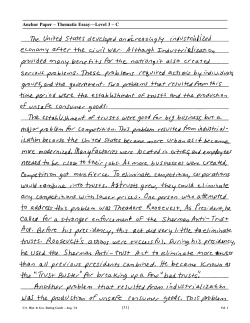 Anchor Paper – Thematic Essay—Level 3 – C
The United States developed an increasingly industrialized
economy after the civil war. Although Industrialization
provided many benefits for the nation, it also created
serious problems. These problems required actions by individuals,
groups, and the government. Two problems that resulted from this
time period were the establishment of trusts and the production
of unsafe consumer goods.
The establishment of trusts were good for big business but a
major problem for competition. This problem resulted from industrial-
ization because the United States became more urban as it became
more modernized. Manufactures were located in cities, and employees
needed to be close to their jobs. As more businesses were created,
competition got more fierce. To eliminate competition, corporations
would combine into trusts. As trusts grew, they could eliminate
any competitions with their prices. One person who attempted
to address this problem was Theodore Roosevelt. As President, he
called for a stronger enforcement of the Sherman Anti-Trust
Act. Before his presidency, this act did very little to eliminate
trusts. Roosevelt's actions were successful. During his presidency,
he used the Sherman Anti-Trust Act to eliminate more
than all previous presidents combined. He became known as
the "Trust Buster" for breaking up a few "bad trusts".
Another problem that resulted from industrialization
was the production of unsafe consumer goods. This problem
U.S. Hist. & Gov. Rating Guide – Aug. '04
[31]
Vol. 1